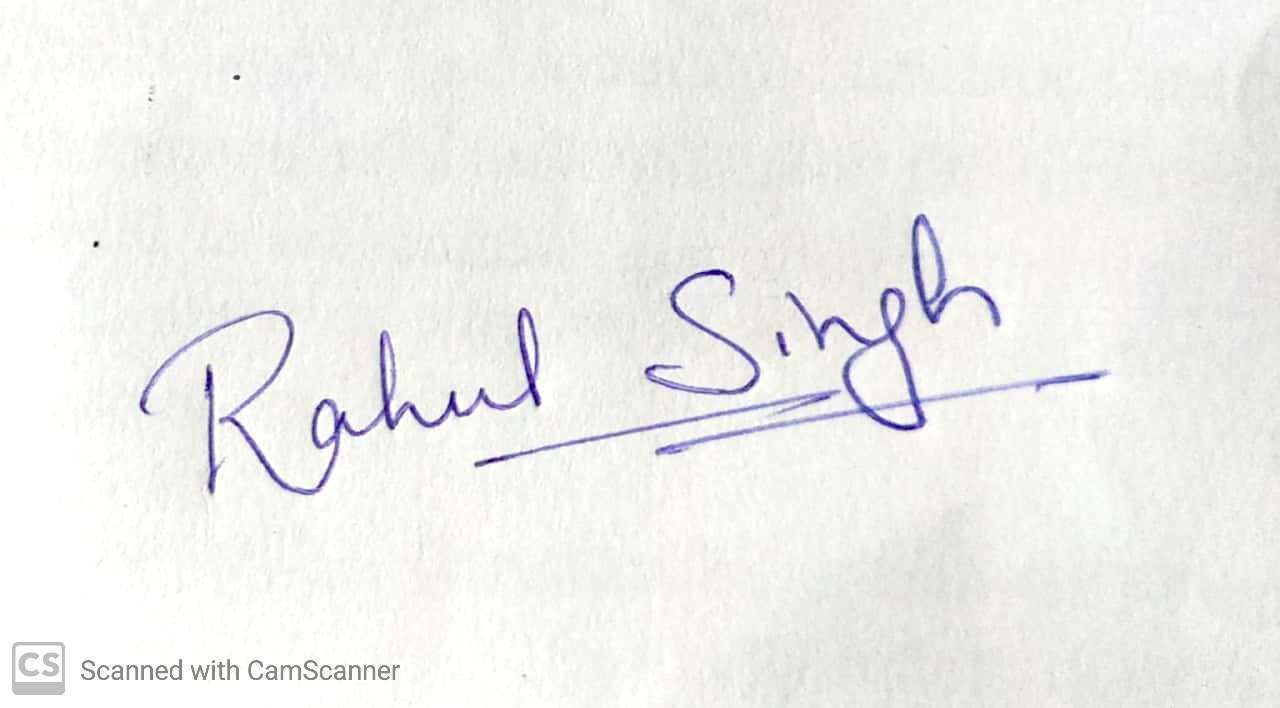 Rahul Singh
CS Scanned with CamScanner